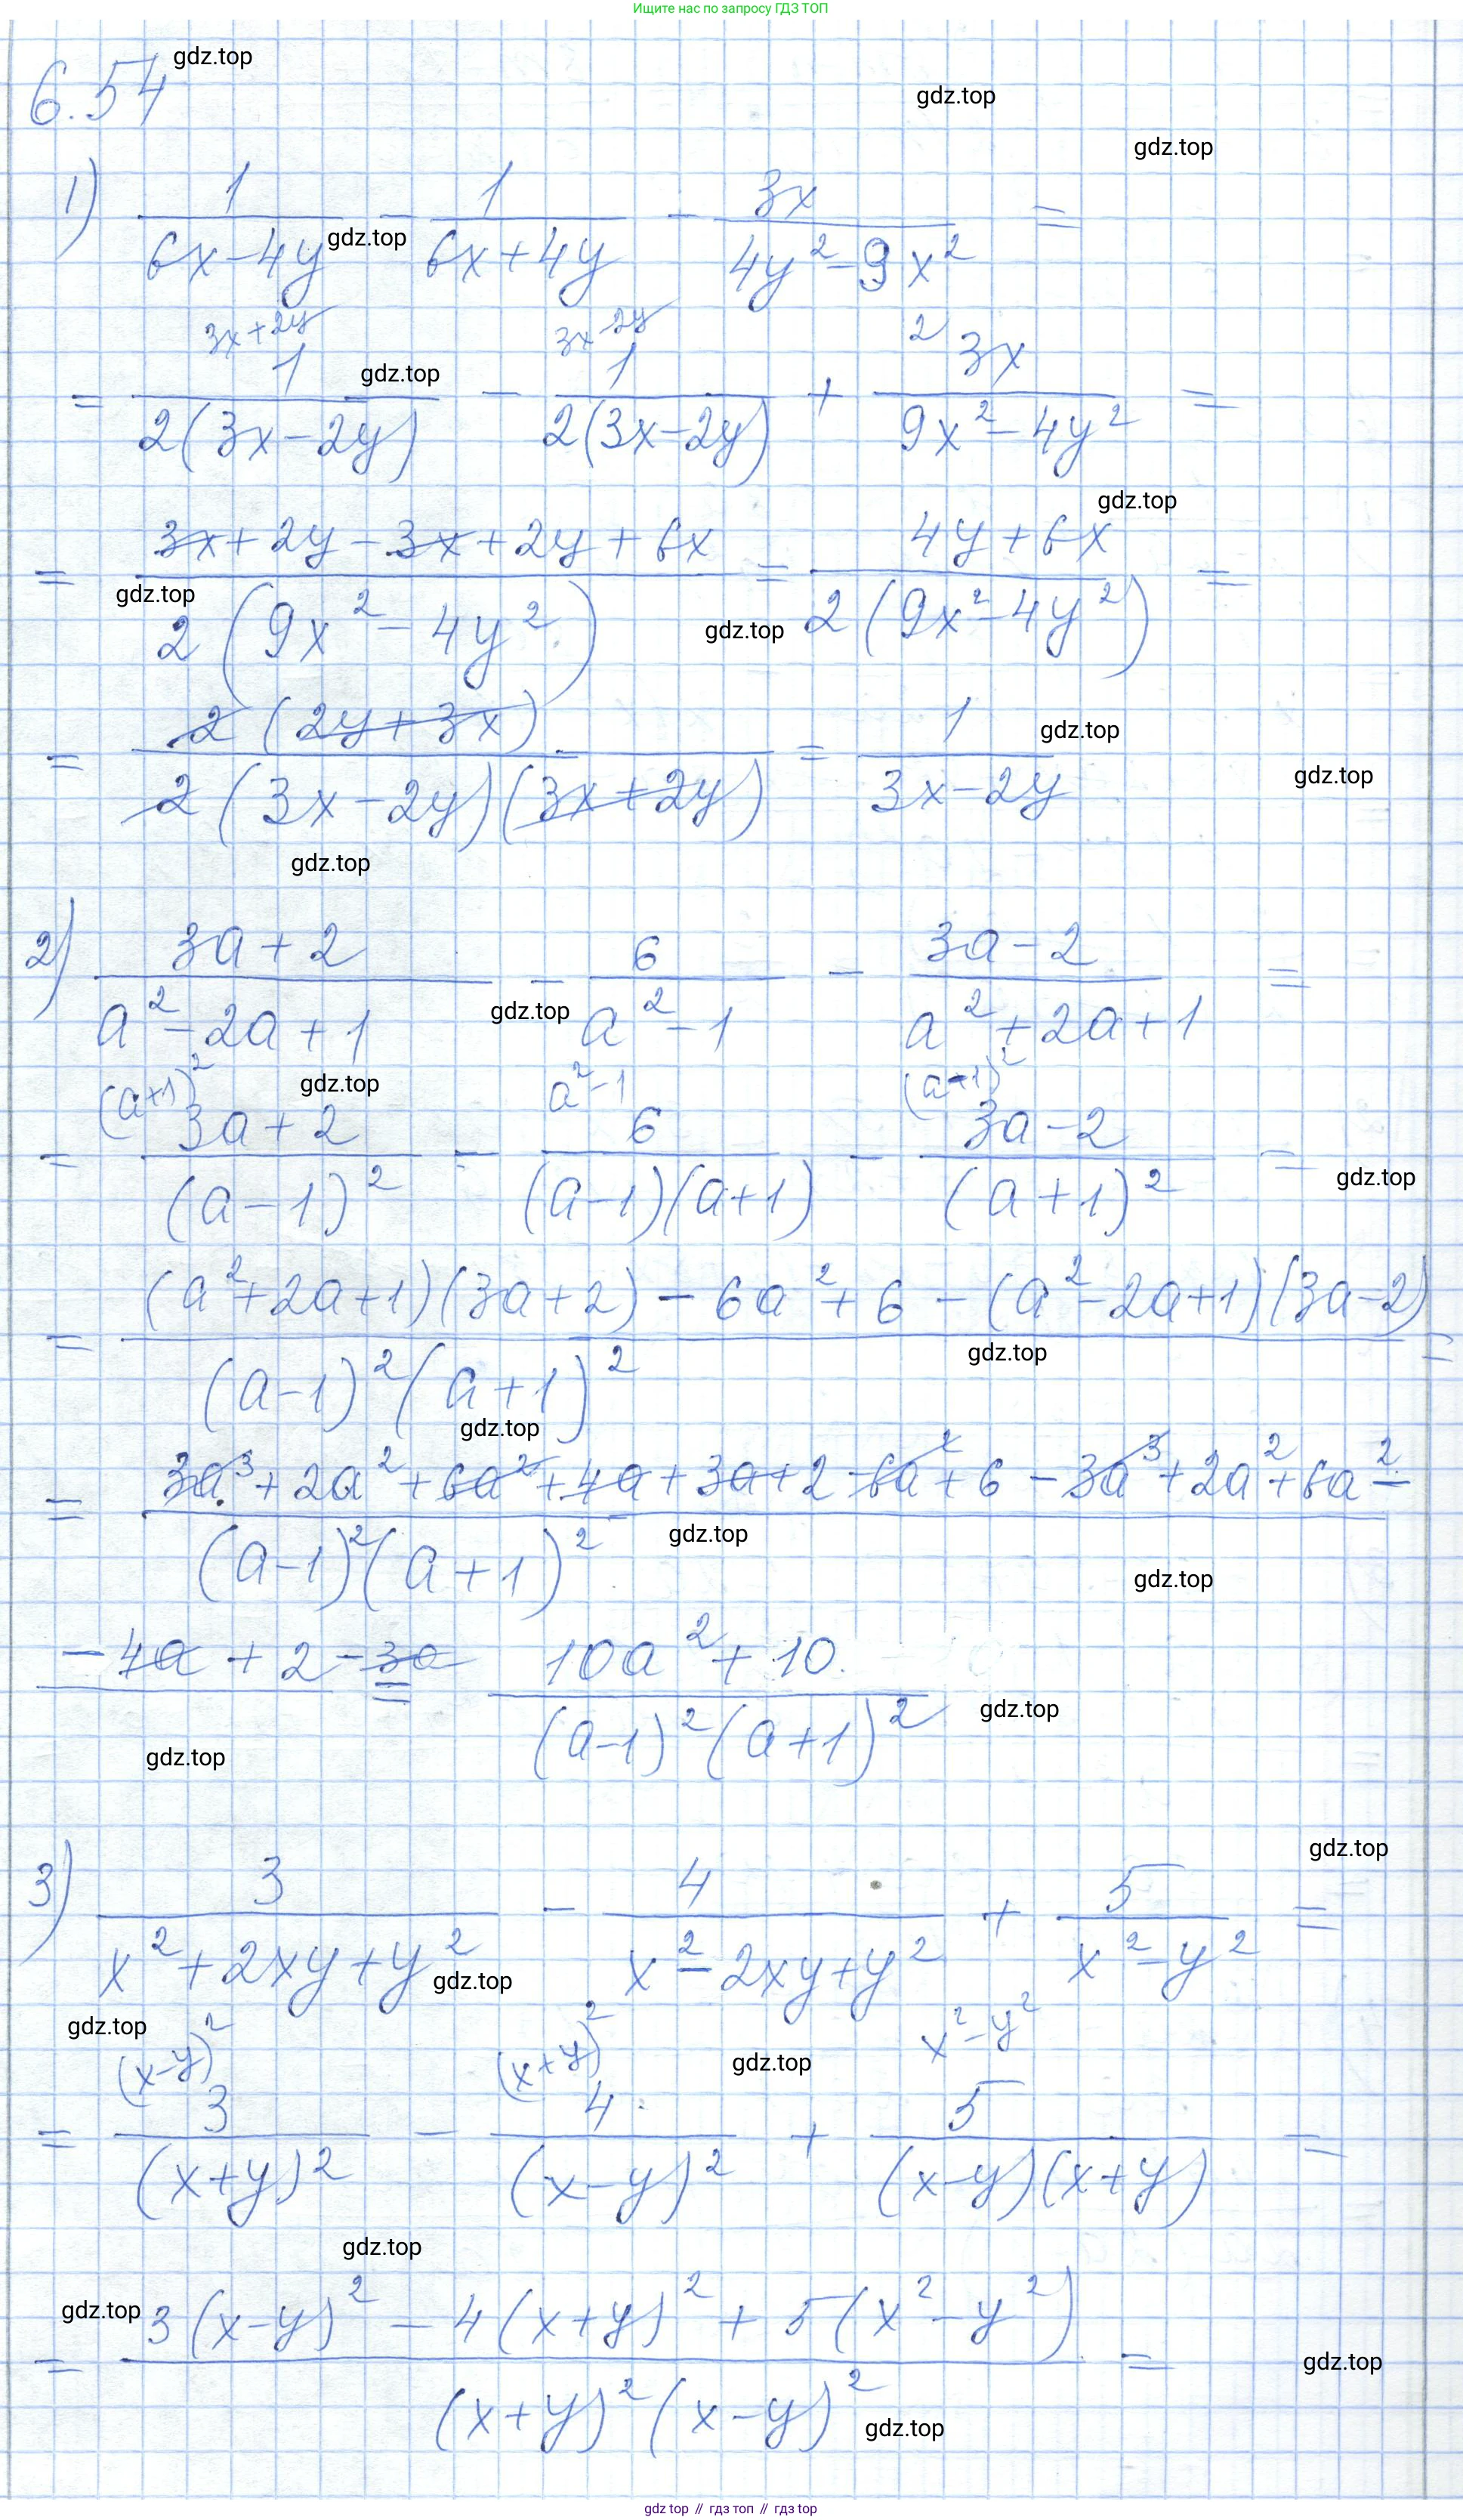 Ищите нас по запросу ГДЗ ТОП
6.54 gdz.top
gdz.top
gdz.top
1) 1/(6x-4y) - 1/(6x+4y) - 3x/(4y²-9x²) =
gdz.top
3x+2y 3x-2y 2
= 1/(2(3x-2y)) - 1/(2(3x-2y)) + 3x/(9x²-4y²) =
gdz.top
gdz.top
= (3x+2y-3x+2y+6x)/(2(9x²-4y²)) = (4y+6x)/(2(9x²-4y²)) =
gdz.top gdz.top
= 2(2y+3x)/(2(3x-2y)(3x+2y)) = 1/(3x-2y)
gdz.top
gdz.top
gdz.top
2) (3a+2)/(a²-2a+1) - 6/(a²-1) - (3a-2)/(a²+2a+1) =
gdz.top
(a+1)² gdz.top a²-1 (a-1)²
= (3a+2)/(a-1)² - 6/((a-1)(a+1)) - (3a-2)/(a+1)² =
gdz.top
= ((a²+2a+1)(3a+2)-6a²+6-(a²-2a+1)(3a-2))/((a-1)²(a+1)²) =
gdz.top
gdz.top
= (3a³+2a²+6a²+4a+3a+2-6a²+6-3a³+2a²+6a²-)/((a-1)²(a+1)²)
gdz.top
gdz.top
-4a+2-3a = (10a²+10)/((a-1)²(a+1)²)
gdz.top
gdz.top
gdz.top
3) 3/(x²+2xy+y²) - 4/(x²-2xy+y²) + 5/(x²-y²) =
gdz.top
gdz.top
(x-y)² (x+y)² x²-y²
gdz.top
= 3/(x+y)² - 4/(x-y)² + 5/((x-y)(x+y)) =
gdz.top
gdz.top
= (3(x-y)²-4(x+y)²+5(x²-y²))/((x+y)²(x-y)²) =
gdz.top
gdz.top
gdz top // гдз топ // гдз top